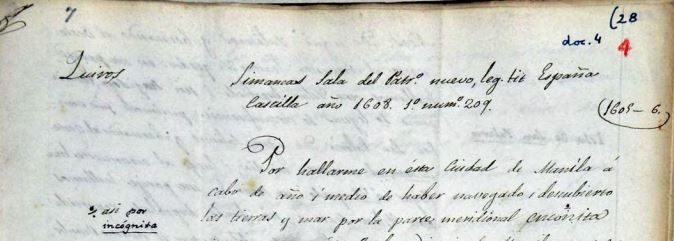 7
(28
doc. 4
4
Quiros
Simancas Sala del Patr.º nuevo, leg. tit España
Castilla año 1608. 1º num.º 209.
(1605-6.)
Por hallarme en ésta Ciudad de Manila á
cabo de año i medio de haber navegado i descubierto
las tierras y mar por la parte meridional encónita
asi por
incógnita